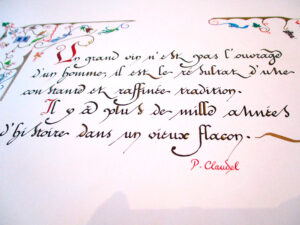 Un grand vin n'est pas l'ouvrage
d'un homme, il est le résultat d'une
constante et raffinée tradition.
Il y a plus de mille années
d'histoire dans un vieux flacon.
P. Claudel